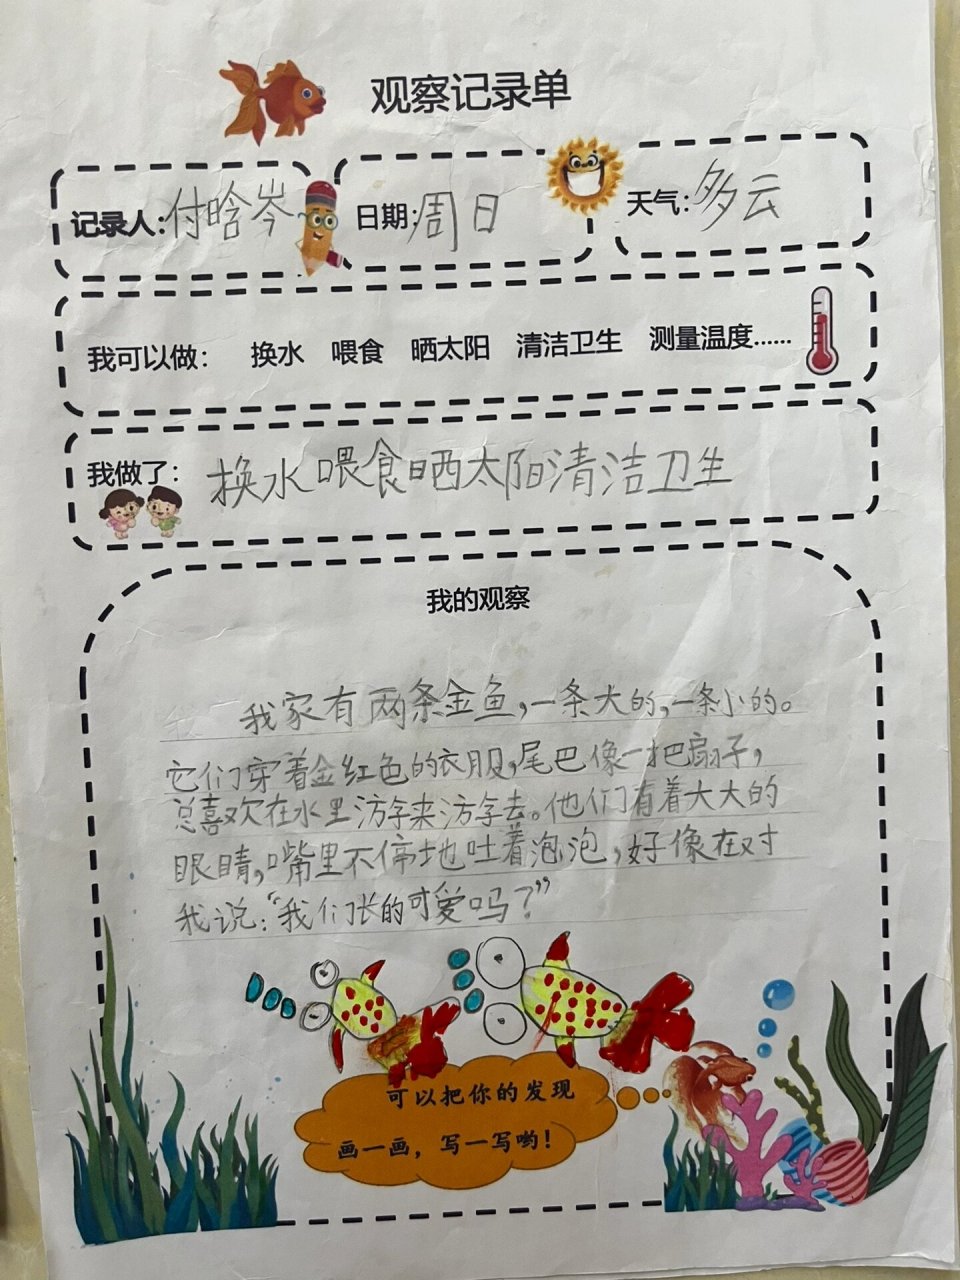 观察记录单
记录人：付晗岑 日期：周日 天气：多云
我可以做： 换水 喂食 晒太阳 清洁卫生 测量温度……
我做了： 换水喂食晒太阳清洁卫生
我的观察
我家有两条金鱼，一条大的，一条小的。
它们穿着金红色的衣服，尾巴像一把扇子，
总喜欢在水里游来游去。他们有着大大的
眼睛，嘴里不停地吐着泡泡，好像在对
我说：“我们长的可爱吗？”
可以把你的发现
画一画，写一写哟！